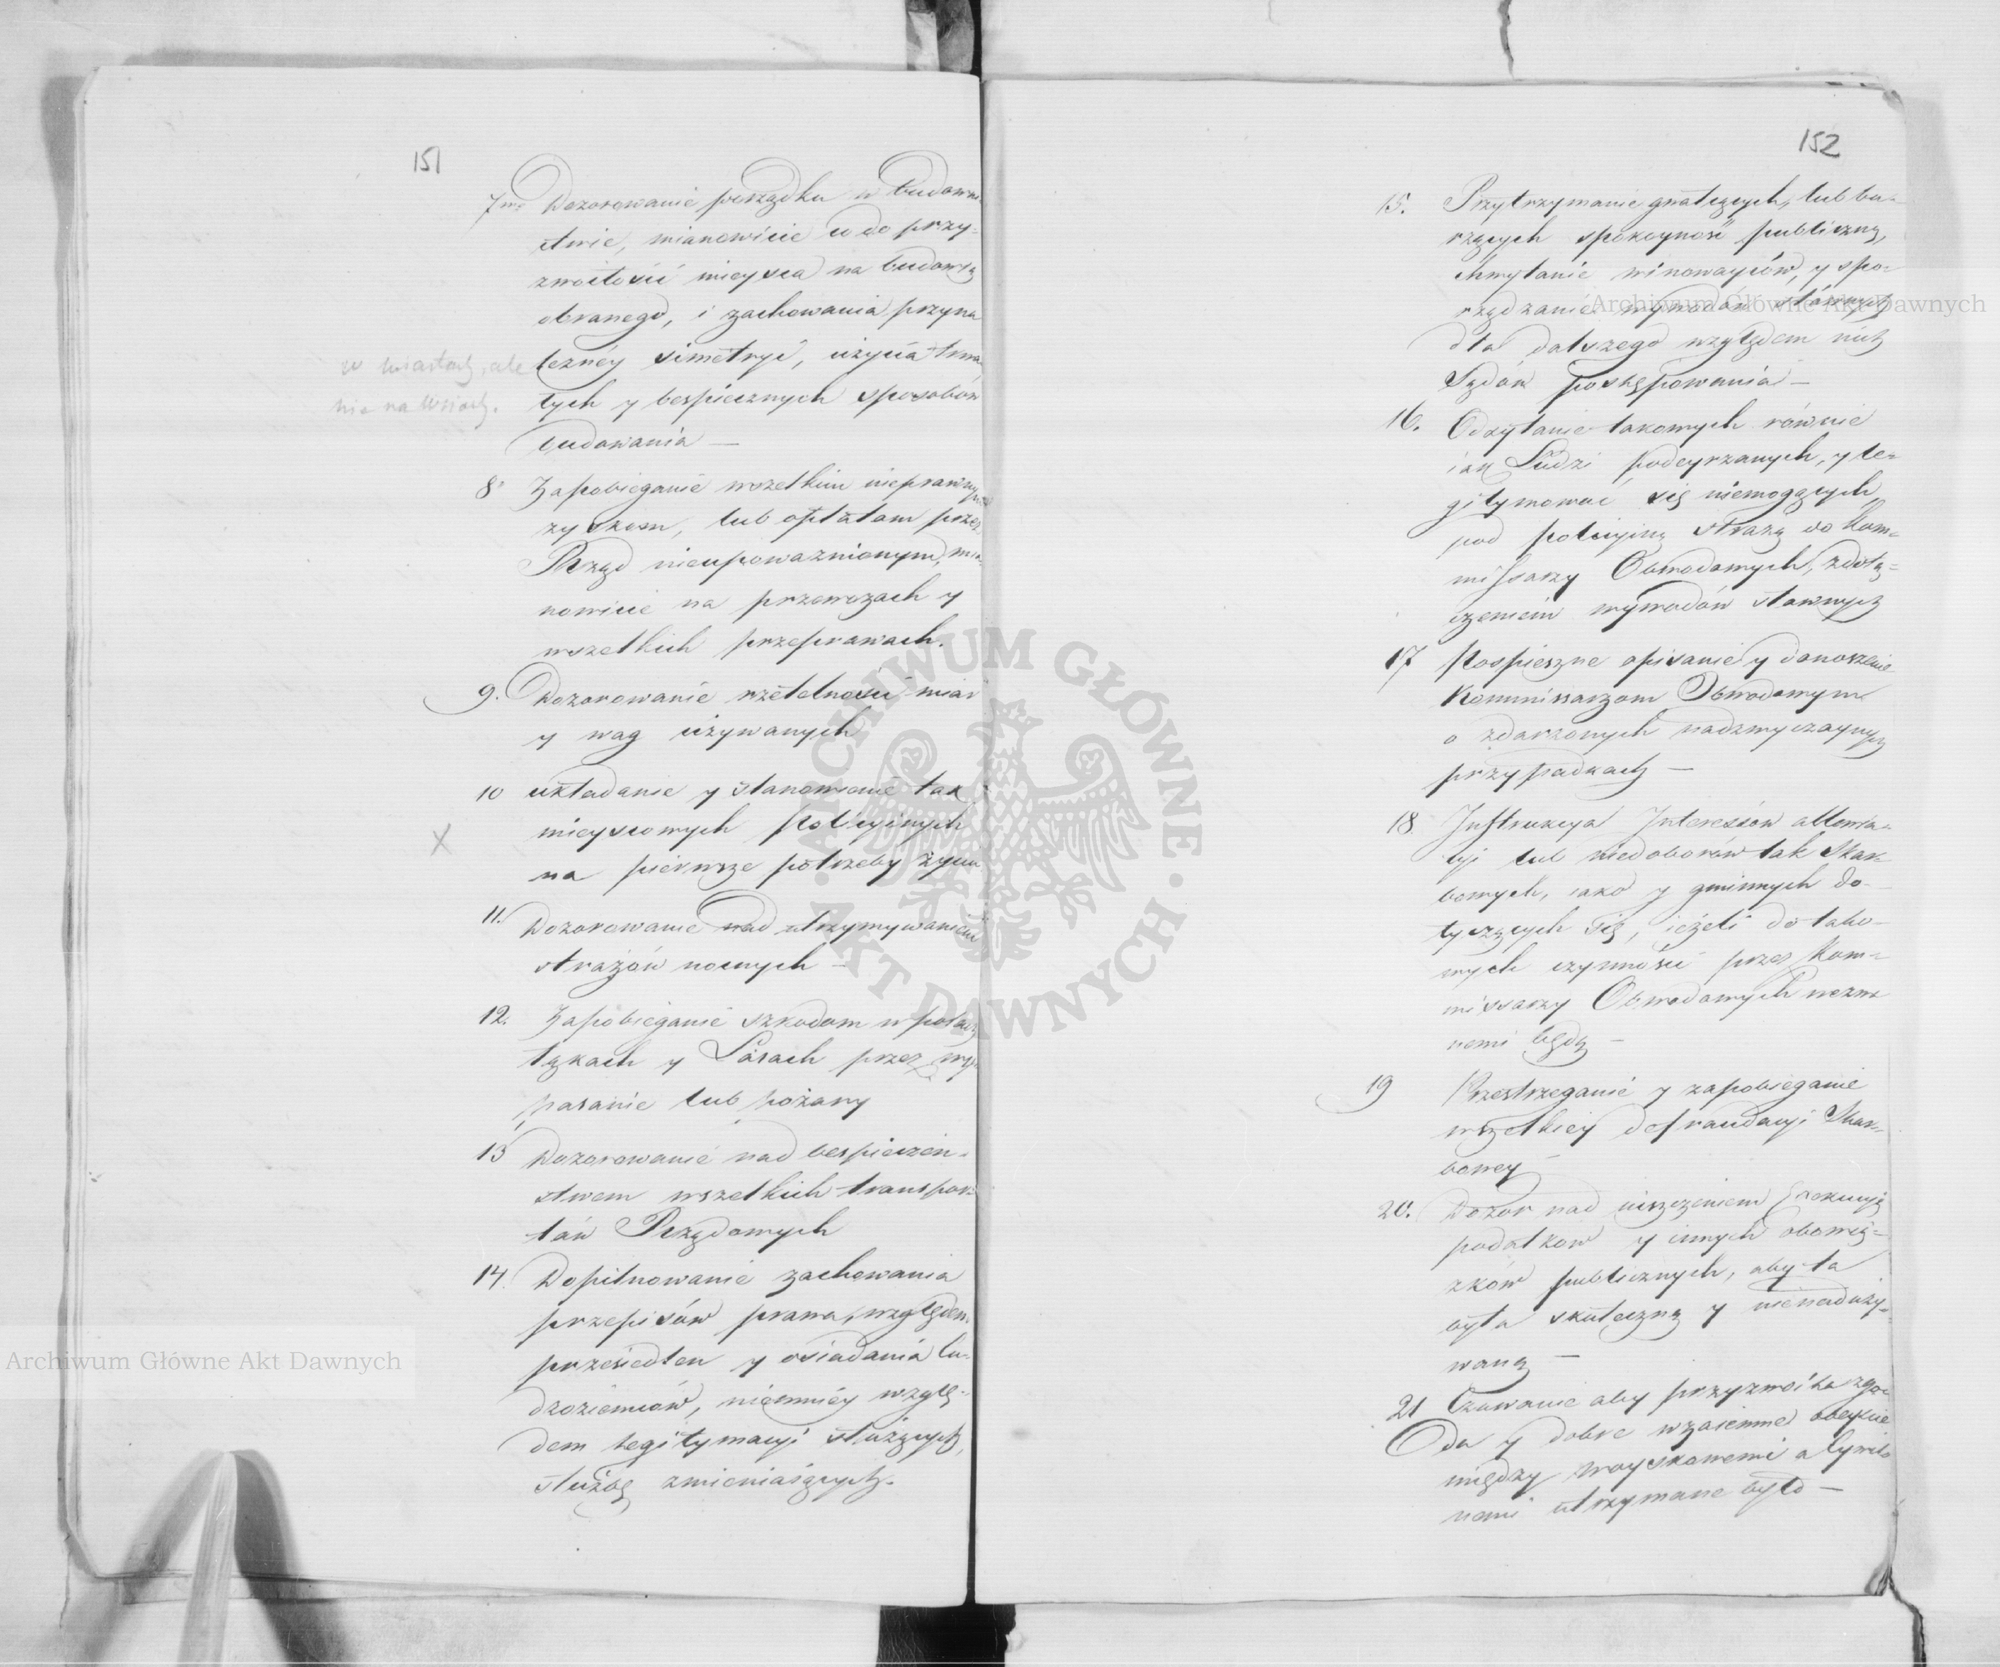 151
7me Dozorowanie porządku w budowni-
ctwie, mianowicie co do przy-
zwoitości mieysca na budowlę
obranego, i zachowania przyna
leżnéy simetryi, użycia trwa
w miastach, ale
nie na wsiach.
łych y bespiecznych sposobów
budowania —
8° Zapobieganie wszelkim nieprawnym
zyskom, lub opłatom przez
Rząd nieupoważnionym, mia-
nowicie na przewozach y
wszelkich przeprawach.
9. Dozorowanie rzetelności miar
y wag używanych
10 układanie y stanowienie tax
mieyscowych Policyinych
na pierwsze potrzeby życia
X
11. Dozorowanie nad utrzymywaniem
strażów nocnych —
12. Zapobieganie szkodom w polach
łąkach y Lasach przez wy-
pasanie lub pożary
13 Dozorowanie nad bespieczeń-
stwem wszelkich transpor-
tów Rządowych
14. Dopilnowanie zachowania
przepisów prawa, względem
przesiedleń y osiadania cu-
dzoziemców, niemniéy wzglę-
dem legitymacyi służących,
służbę zmieniaiących.
152
15. Przytrzymanie gwałcących, lub bu-
rzących spokoyność publiczną,
chwytanie winowayców, y spo-
rządzanie wywodów słownych
dla dalszego względem nich
Sądów postępowania —
16. Odsyłanie takowych równie
iak Ludzi podeyrzanych, y le-
gitymować się niemogących,
pod policyiną strażą do Kom-
missarzy Obwodowych, z dołą-
czeniem wywodów słownych
17 Pospieszne opisanie y donoszenie
Kommissarzom Obwodowym
o zdarzonych nadzwyczaynych
przypadkach —
18 Instrukcya Interessów allewia-
cyi lub niedoborów tak Skar-
bowych, iako y gminnych do-
tyczących się, ieżeli do tako-
wych czynności przez Kom-
missarzy Obwodowych wezwa
nemi będą —
19 Przestrzeganie y zapobieganie
wszelkiey defraudacyi Skar-
bowey —
20. Dozór nad uiszczeniem Exekucyą
podatków y innych obowią-
zków publicznych, aby ta
była skuteczną y nienaduży-
waną —
21 Czuwanie aby przyzwoita zgo-
da y dobre wzaiemne obeyście
między woyskowemi a Cywil-
nemi utrzymane było —
Archiwum Główne Akt Dawnych
Archiwum Główne Akt Dawnych
ARCHIWUM GŁÓWNE · AKT DAWNYCH ·